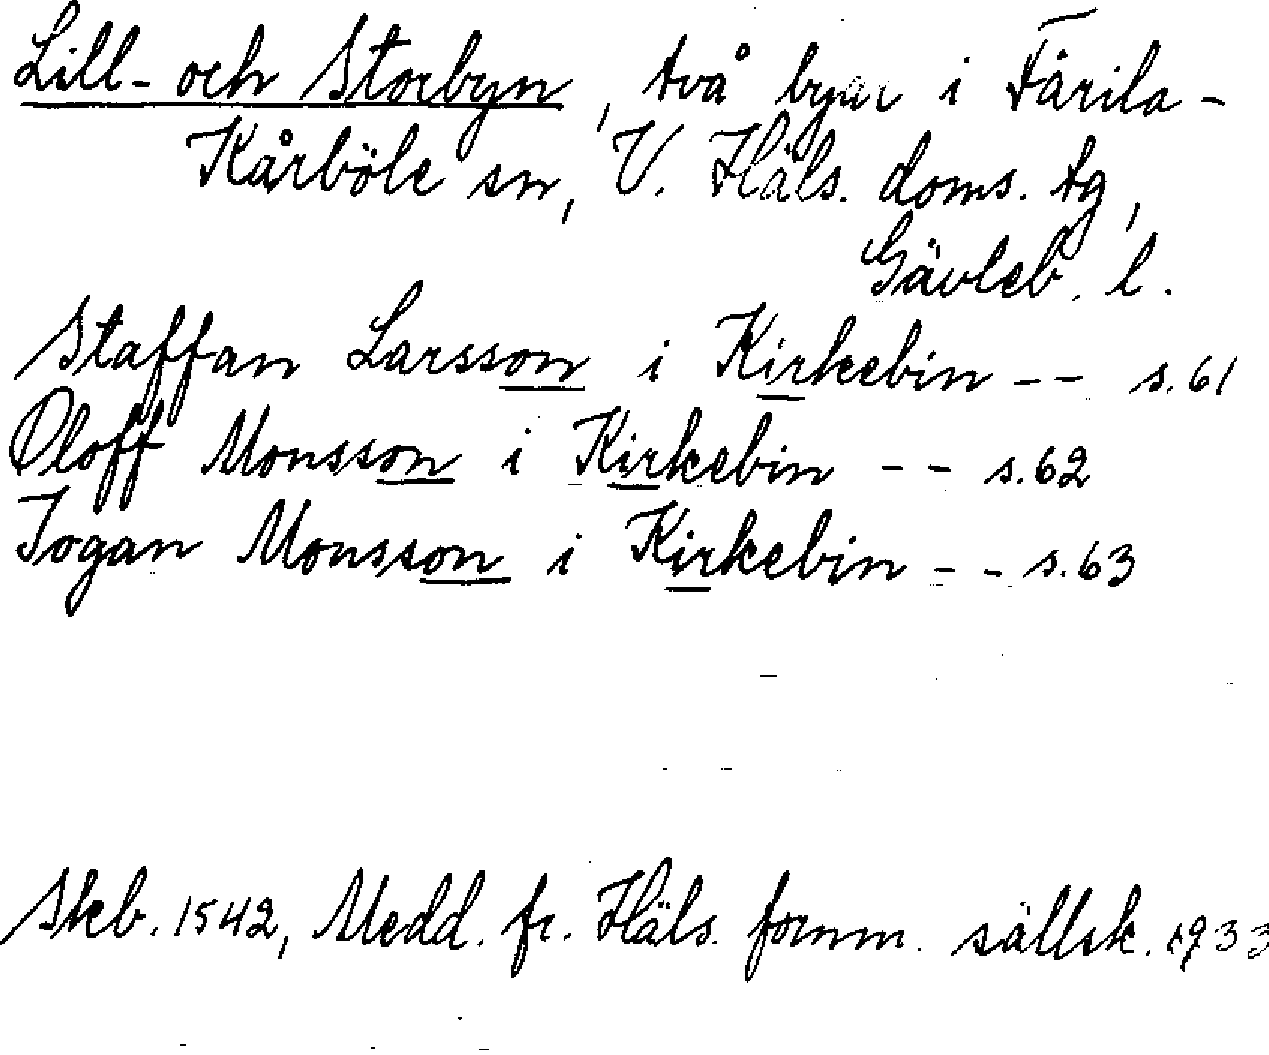 Lill- och Storbyn, två byar i Färila-
Kårböle sn, V. Häls. doms. tg,
Gävleb. l.
Staffan Larsson i Kirkebin -- s. 61
Oloff Monsson i Kirkebin -- s. 62
Jogan Monsson i Kirkebin -- s. 63
Skb. 1542, Medd. fr. Häls. fornm. sällsk. 1933